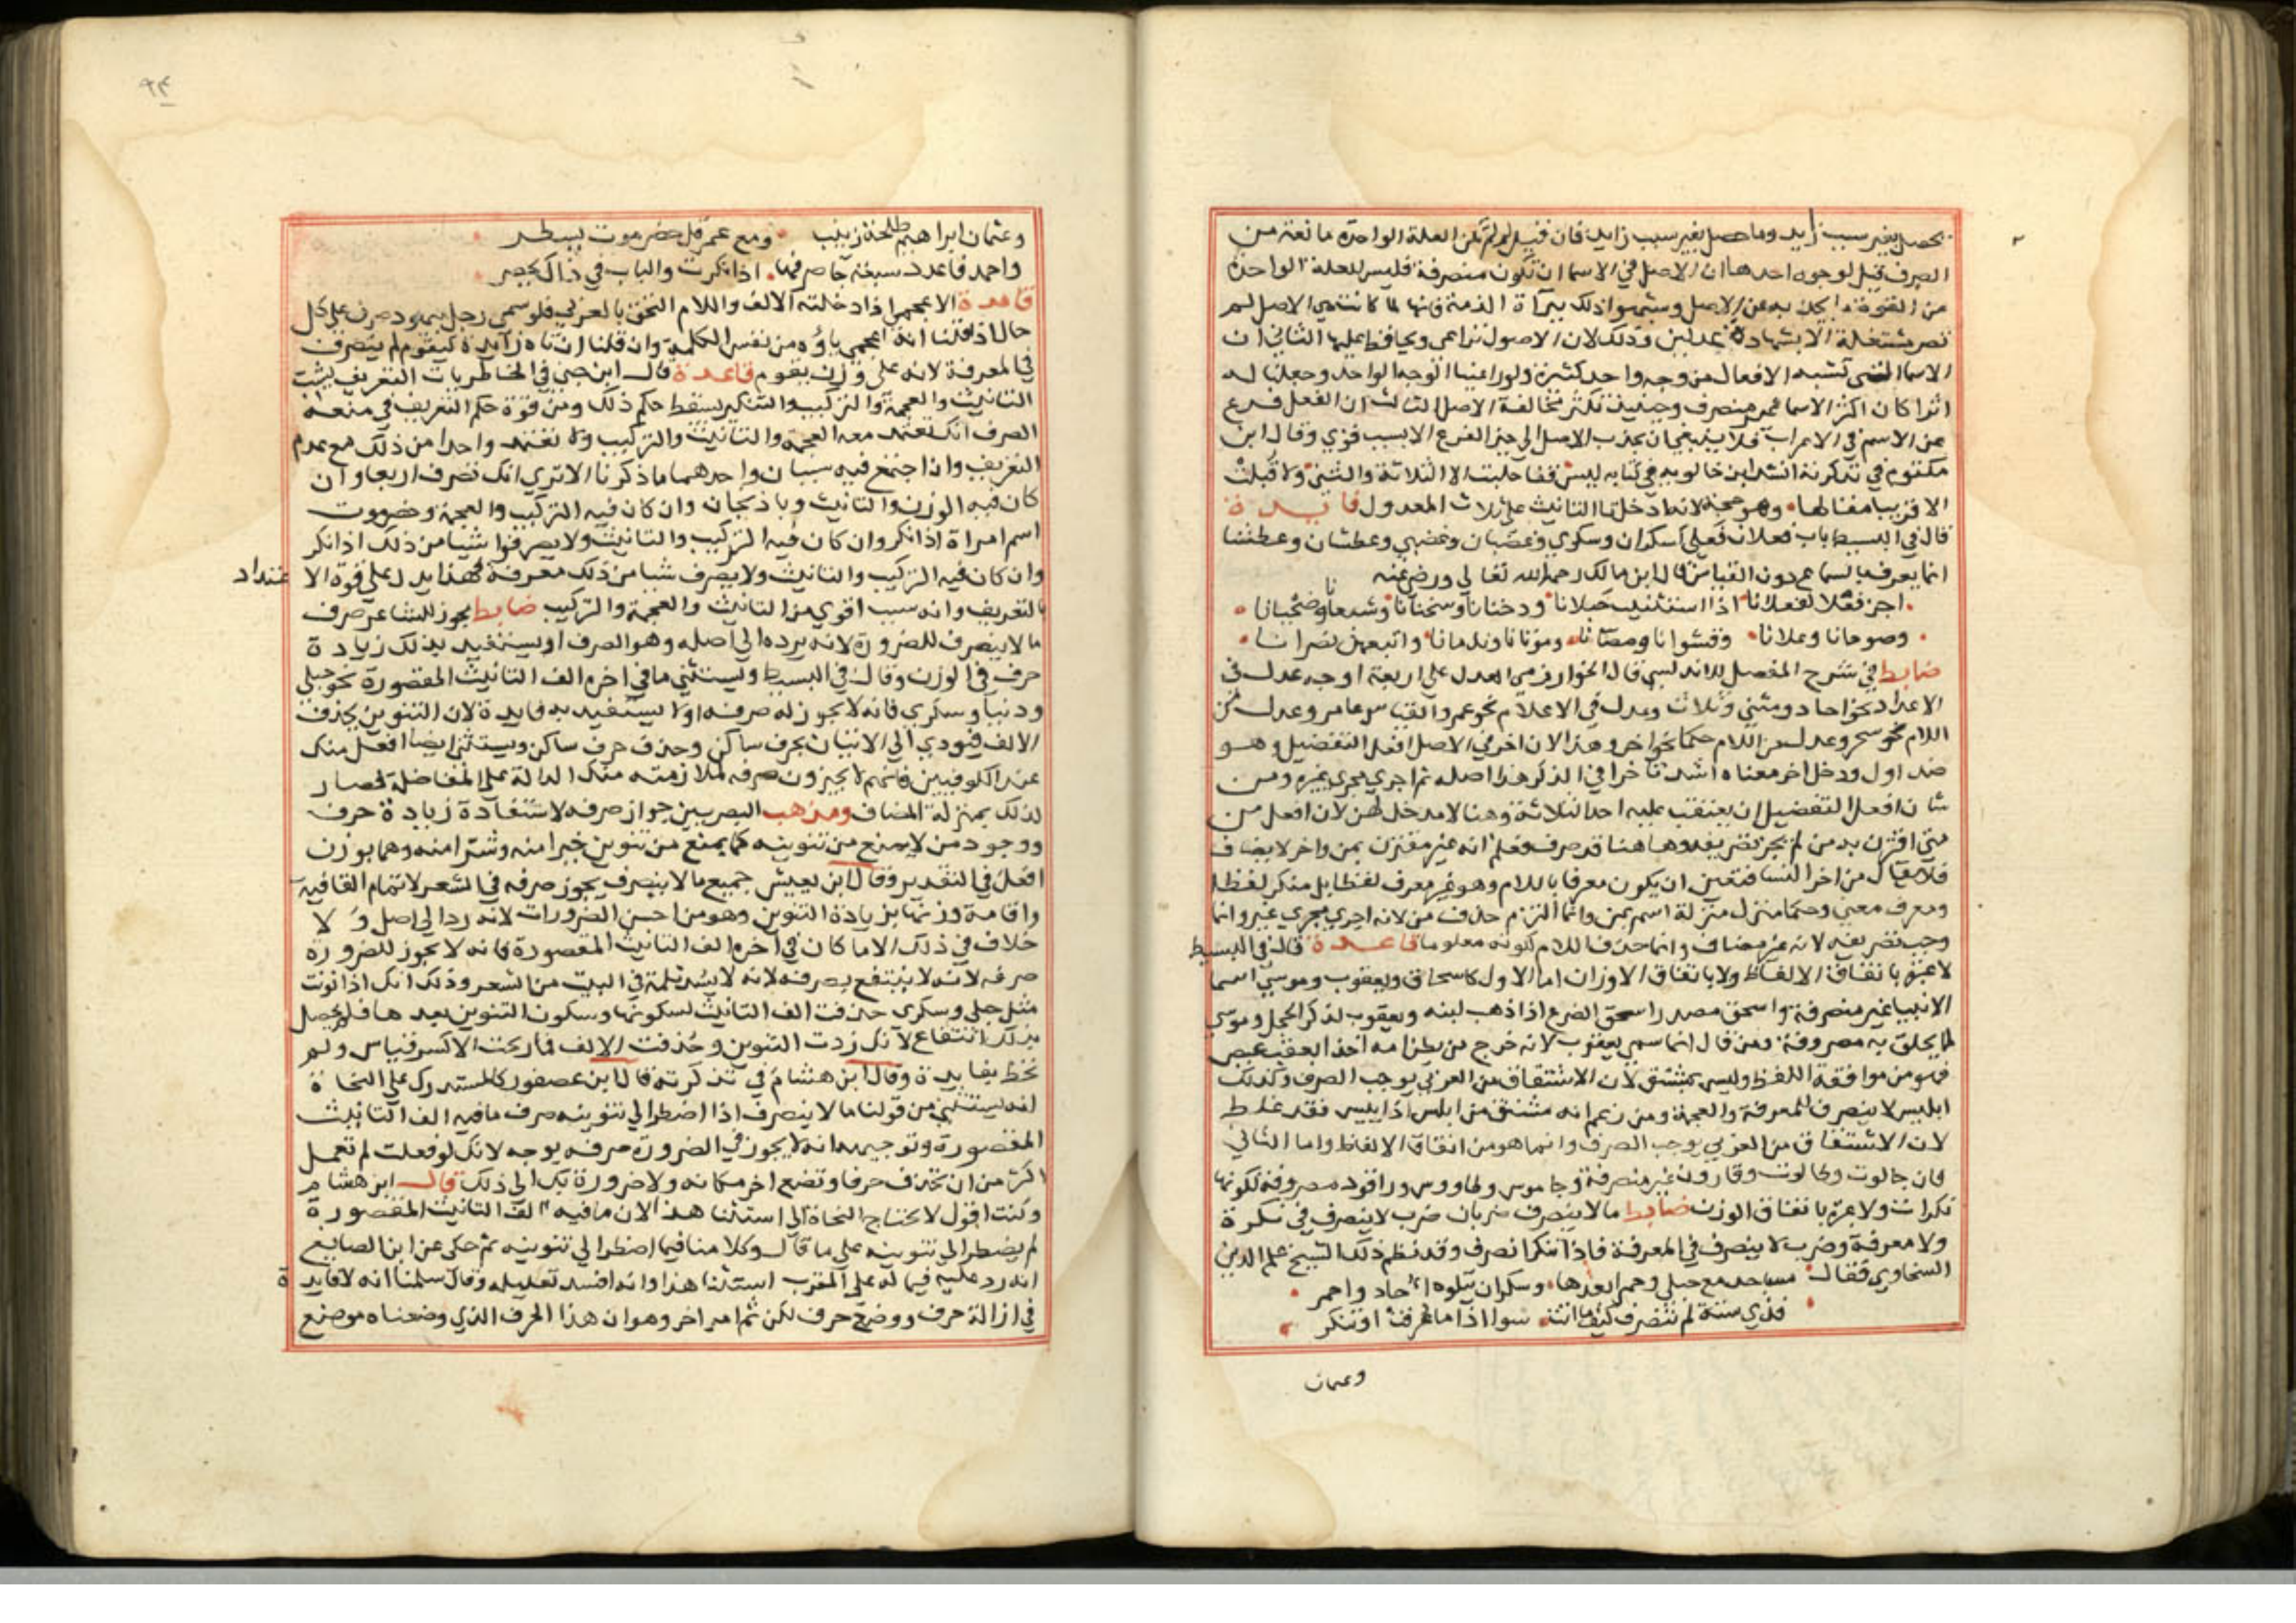 يحصل بغير سبب زايد وما حصل بغير سبب زايد فان قيل لم لم تكن العلة الواحدة مانعة من
الصرف قيل لوجوه احدها ان الاصل في الاسما ان تكون منصرفة فليس للعلة الواحدة
من القوة ما يجذبه عن الاصل وشبهوا ذلك ببرآة الذمة فانها لما كانت هي الاصل لم
تصر مشتغلة الا بشهادة عدلين وذلك لان الاصول تراعى ويحافظ عليها الثاني ان
الاسما التي تشبه الافعال من وجه واحد كثيرة ولو راعينا الوجه الواحد وجعلنا له
اثرا كان اكثر الاسما غير منصرف وحينيذ تكثر مخالفة الاصل الثالث ان الفعل فرع
عن الاسم في الاعراب فلا ينبغي ان يجذب الاصل الى حيز الفرع الا بسبب قوي وقال ابن
مكتوم في تذكرته انشد ابن خالويه في كتابه ليس فما حلبت الا الثلاثة والثنى ولا قيلت
الا قريبا مقالها وهو حجة لانه ادخل تا التانيث على ثلاث المعدول فايدة
قال في البسيط باب فعلان فعلى كسكران وسكري وغضبان وغضبي وعطشان وعطشى
انما يعرف بالسماع دون القياس قال ابن مالك رحمه الله تعالى ورضي عنه
اجز فعلا لفعلانا اذا استثنيت حبلانا ودخنانا وسخنانا وسيفانا وضحيانا
وصوجانا وعلانا وقشوانا ومصانا وموتانا وندمانا واتبعهن نصرانا
ضابط في شرح المفصل للاندلسي قال الخوارزمي العدل على اربعة اوجه عدل في
الاعداد نحو احاد ومثنى وثلاث وعدل في الاعلام نحو عمر والقياس عامر وعدل من
اللام نحو سحر وعدل عن اللام حكما نحو اخر وهذا لان اخر في الاصل افعل التفضيل وهو
ضد اول ودخل اخر معناه اشد تاخرا في الذكر هذا اصله ثم اجري مجرى غيره ومن
شان افعل التفضيل ان يعتقب عليه احد الثلاثة وهنا لا مدخل لهن لان افعل من
متى اقترن به من لم يجز تصريفه وها هنا قد صرف فعلم انه غير مقترن بمن واخر لا يضاف
فلا يقال من اخر النسا فتعين ان يكون معرفا باللام وهو غير معرف لفظا بل منكر لفظا
ومعرف معنى وحكما منزل منزلة اسم بمن وانما التزم حذف من لانه اجري مجرى غير وانما
وجب تصريفه لانه غير مضاف وانما حذف اللام لكونه معلوما قاعدة قال في البسيط
لا عبرة باتفاق الالفاظ ولا باتفاق الاوزان اما الاول كاسحاق ويعقوب وموسي اسما
الانبيا غير منصرفة واسحق مصدر اسحق الضرع اذا ذهب لبنه ويعقوب لذكر الحجل وموسى
لما يحلق به مصروفة ومن قال انما سمي يعقوب لانه خرج من بطن امه اخذا بعقب عيص
فهو من موافقة اللفظ وليس بمشتق لان الاشتقاق من العربي يوجب الصرف وكذلك
ابليس لا ينصرف للمعرفة والعجمة ومن زعم انه مشتق من ابلس اذا ييس فقد غلط
لان الاشتقاق من العربي يوجب الصرف وانما هو من اتفاق الالفاظ واما الثاني
فان جالوت وطالوت وقارون غير منصرفة وجاموس وطاووس وراقود مصروفة لكونها
نكرات ولا عبرة باتفاق الوزن ضابط ما لا ينصرف ضربان ضرب لا ينصرف في نكرة
ولا معرفة وضرب لا ينصرف في المعرفة فاذا نكر انصرف وقد نظم ذلك الشيخ علم الدين
السخاوي فقال مساجد مع حبلى وحمرا بعدها وسكران يتلوه احاد واحمر
فذي ستة لم تنصرف كيف ما اتت سوا اذا ما عرفت او تنكر
وعثمان
٩٣
وعثمان ابراهيم طلحة زينب ومع عمر قل حضرموت يسطر
واحمد فاعدد سبعة جا صرفها اذا نكرت والباب في ذاك يحصر
قاعدة الاعجمي اذا دخلته الالف واللام التحق بالعربي فلو سمي رجل بيهود صرف على كل
حال اذ قلنا انه اعجمي ياؤه من نفس الكلمة وان قلنا ان ياه زايدة كيقوم لم ينصرف
في المعرفة لانه على وزن يقوم قاعدة قال ابن جني في الخاطريات التعريف يثبت
التانيث والعجمة والتركيب والتنكير يسقط حكم ذلك ومن قوة حكم التعريف في منعه
الصرف انك تعتد معه العجمة والتانيث والتركيب ولا تعتد واحدا من ذلك مع عدم
التعريف واذا اجتمع فيه سببان واحدهما ما ذكرنا الا ترى انك تصرف اربعا وان
كان فيه الوزن والتانيث وباذنجان وان كان فيه التركيب والعجمة وحضرموت
اسم امراة اذا نكر وان كان فيه التركيب والتانيث ولا يصرفوا شيا من ذلك اذا نكر
وان كان فيه التركيب والتانيث ولا يصرف شيا من ذلك معرفة فهذا يدل على قوة الاعتداد
بالتعريف وانه سبب اقوى من التانيث والعجمة والتركيب ضابط يجوز للشاعر صرف
ما لا ينصرف للضرورة لانه يرده الى اصله وهو الصرف او يستفيد بذلك زيادة
حرف في الوزن وقال في البسيط ويستثنى ما في اخره الف التانيث المقصورة نحو حبلى
ودنيا وسكرى فانه لا يجوز له صرفه اولا يستفيد به فايدة لان التنوين يحذف
الالف فيودي الى الاتيان بحرف ساكن وحذف حرف ساكن ويستثنى ايضا افعل منك
عند الكوفيين فانهم لا يجيزون صرفه لملازمته منك الدالة على المفاضلة فصار
لذلك بمنزلة المضاف ومذهب البصريين جواز صرفه لاستفادة زيادة حرف
ووجود من لا يمنع من تنوينه كما يمنع من تنوين خيرا منه وشرا منه وهما بوزن
افعل في التقدير وقال ابن يعيش جميع ما لا ينصرف يجوز صرفه في الشعر لاتمام القافية
واقامة وزنها بزيادة التنوين وهو من احسن الضرورات لانه رد الى اصل ولا
خلاف في ذلك الا ما كان في آخره الف التانيث المقصورة فانه لا يجوز للضرورة
صرفه لانه لا ينتفع بصرفه لانه لا يسد ثلمة في البيت من الشعر وذلك انك اذا نونت
مثل حبلى وسكرى حذفت الف التانيث لسكونها وسكون التنوين بعدها فلم يحصل
بذلك انتفاع لانك زدت التنوين وحذفت الالف فما ربحت الا كسر قياس ولم
تحظ بفايدة وقال ابن هشام في تذكرته قال ابن عصفور كالمستدرك على النحاة
انه يستثنى من قولنا ما لا ينصرف اذا اضطر الى تنوينه صرف ما فيه الف التانيث
المقصورة وتوجيهه انه لا يجوز في الضرورة صرفه بوجه لانك لو فعلت لم تعمل
اكثر من ان تحذف حرفا وتضع اخر مكانه ولا ضرورة بك الى ذلك قال ابن هشام
وكنت اقول لا يحتاج النحاة الى استثنا هذا لان ما فيه الف التانيث المقصورة
لم يضطر الى تنوينه على ما قال وكلامنا فيما اضطر الى تنوينه ثم حكى عن ابن الصايغ
انه رد عليه فيما له على المقرب استثنا هذا وانه افسد تعليله وقال سلمنا انه لا فايدة
في ازالة حرف ووضع حرف لكن ثم امر اخر وهو ان هذا الحرف الذي وضعناه موضع